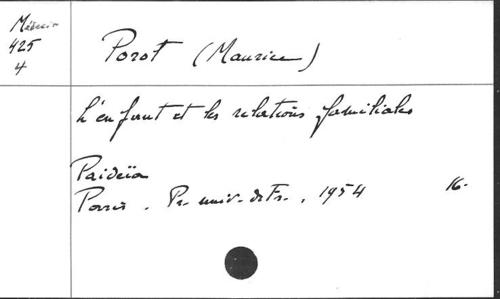 Médecin
425
4
Porot (Maurice)
L'enfant et les relations familiales
Paideïa
Paris. Pr. univ. de Fr., 1954 16.